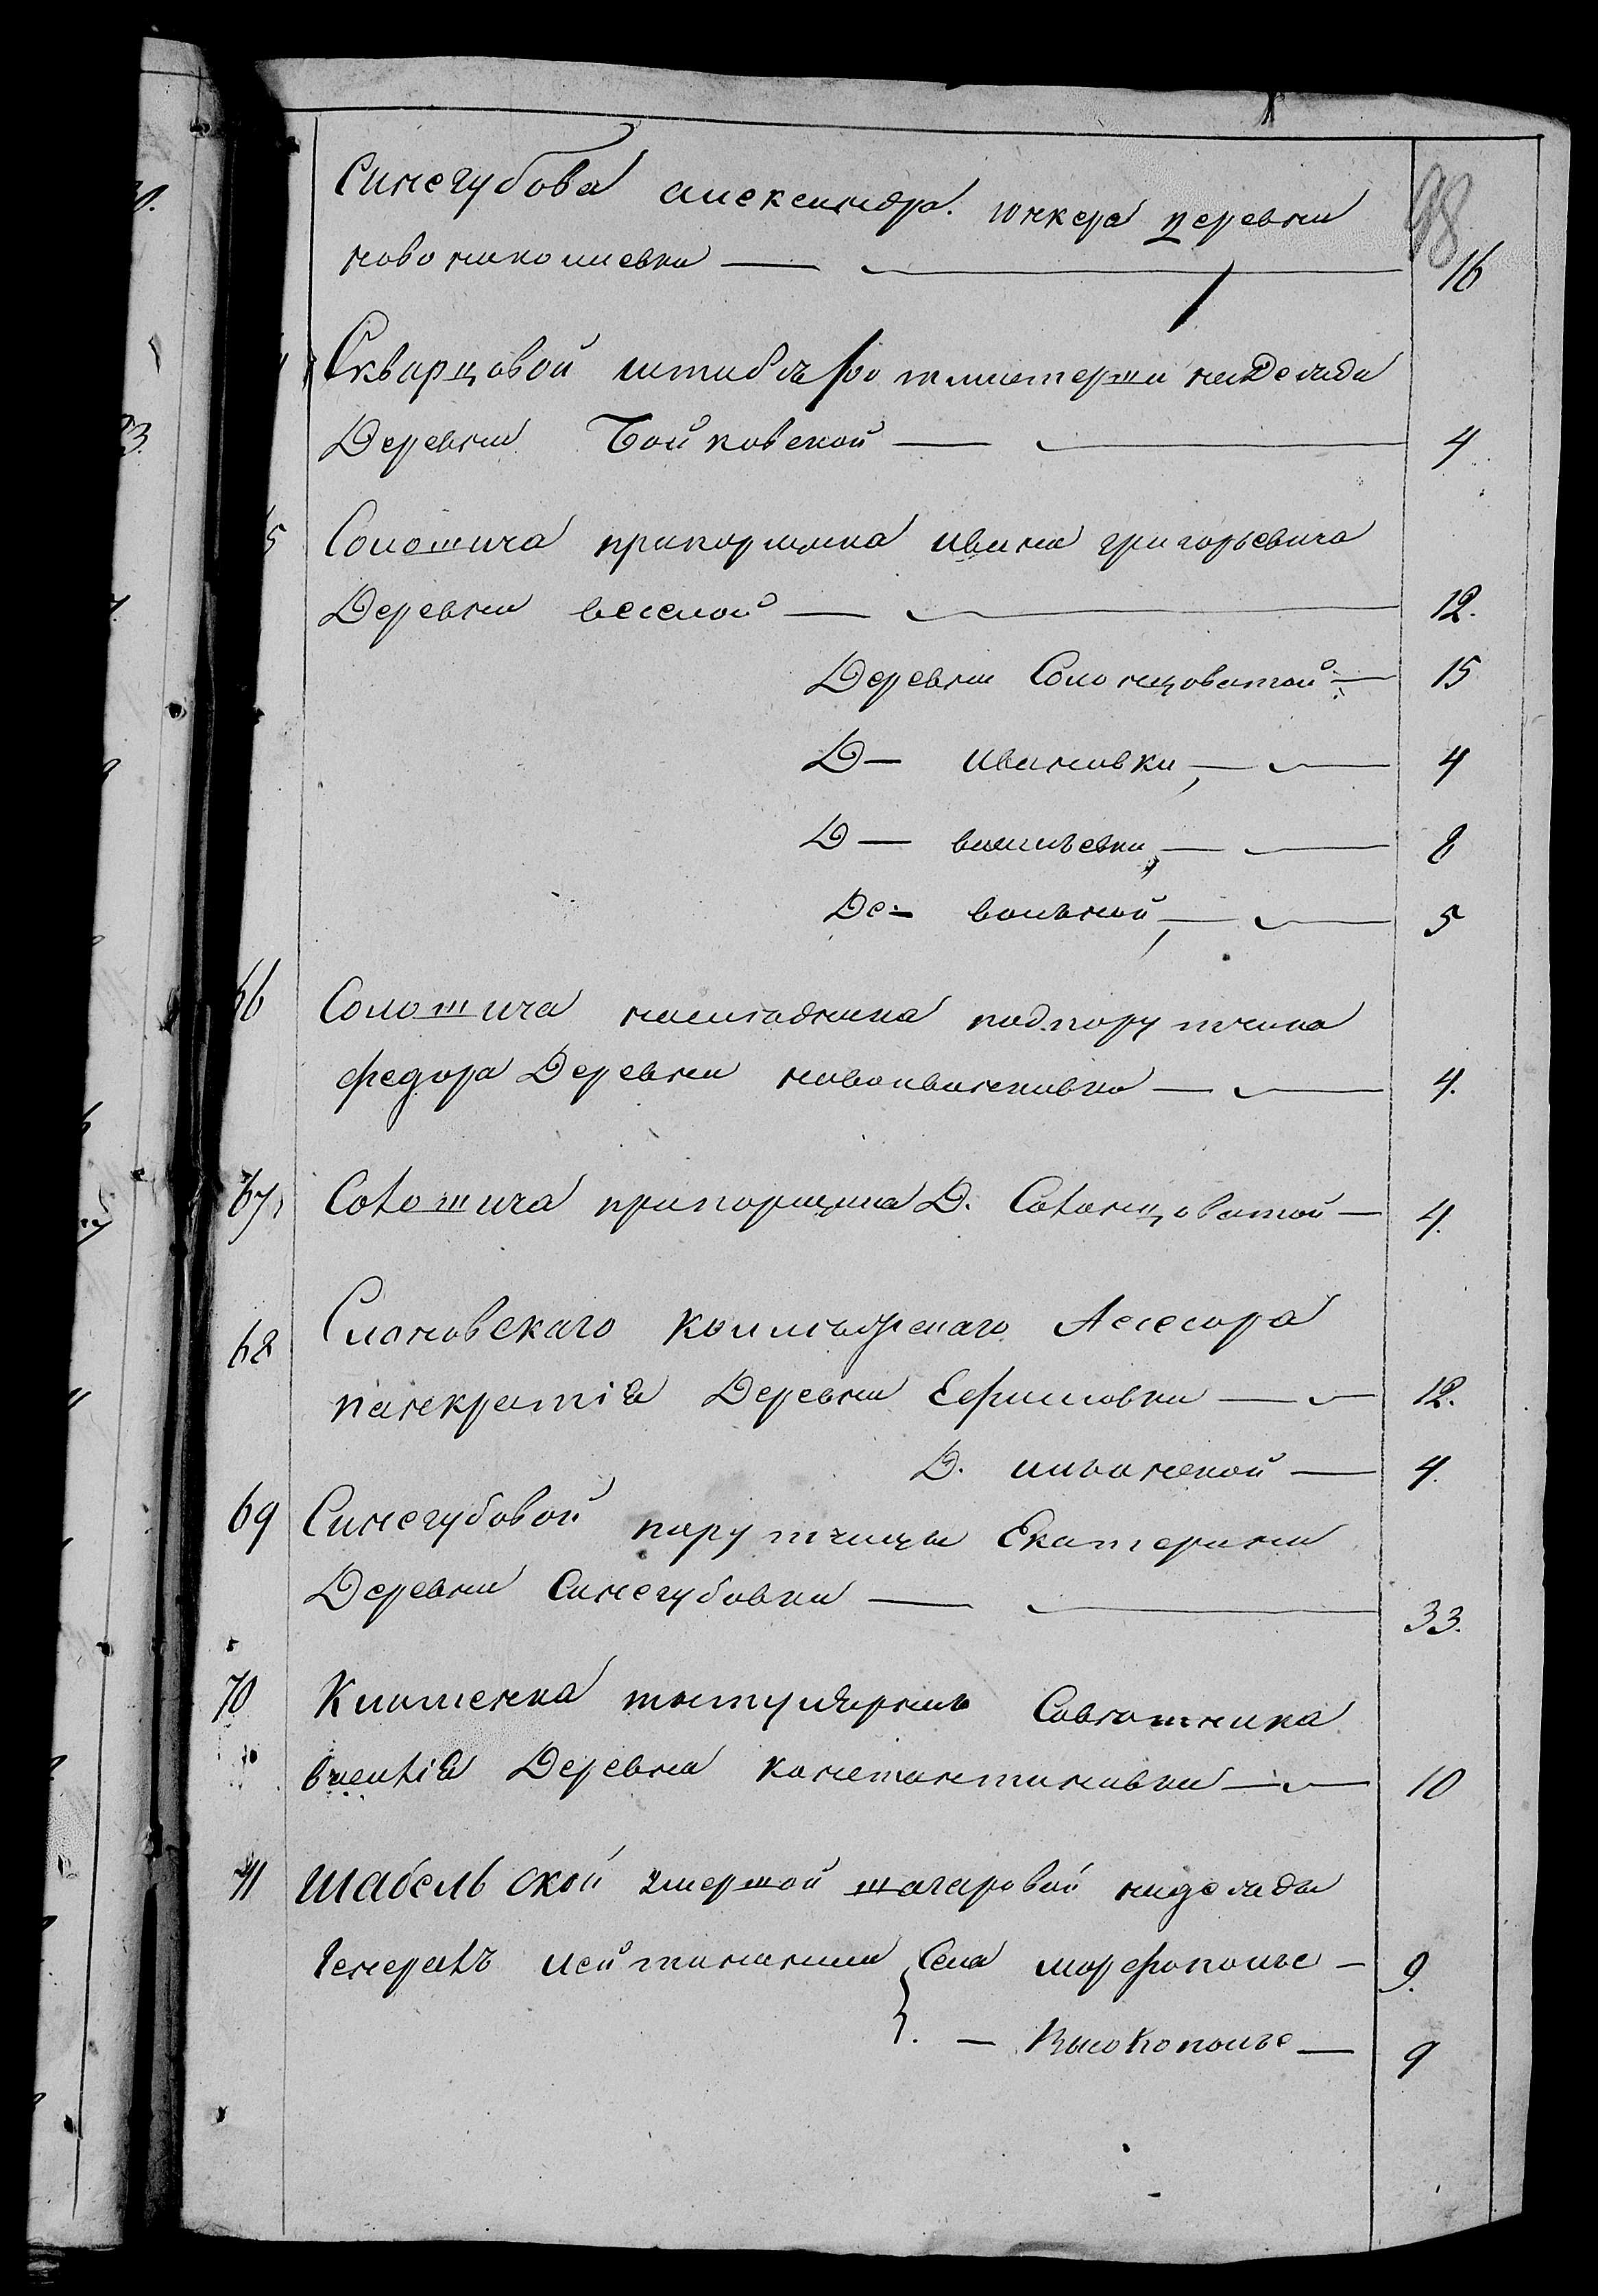 98
Синегубова александра. юнкера деревни
новониколаевки — — 16
Скварцовой штабсъ ротмистерши надежди
Деревни Бойковской — — 4
5 Солошича прапорщика ивана григорьевича
Деревни веселой — — 12.
Деревни Солонцоватой — 15
Д — ивановки, — — 4
Д — васильевки, — — 8
Де — вольной, — — 5
66 Солошича насладника подпорутчика
федора Деревни новоивановки — — 4.
67 Солошича прапорщика Д. Солонцоватой — 4.
68 Слоновскаго коллежскаго Асесора
панкратія Деревни Ефимовки — — 12.
Д. ильинской — 4.
69 Синегубовой порутчицы Екатерини
Деревни Синегубовки — — 33.
70 титулярнаго Совѣтника
Деревни константиновки — — 10
71 Шабельской умершой надежды
Генералъ лейтинанши Села морфополье — 9.
— Высокополье — 9